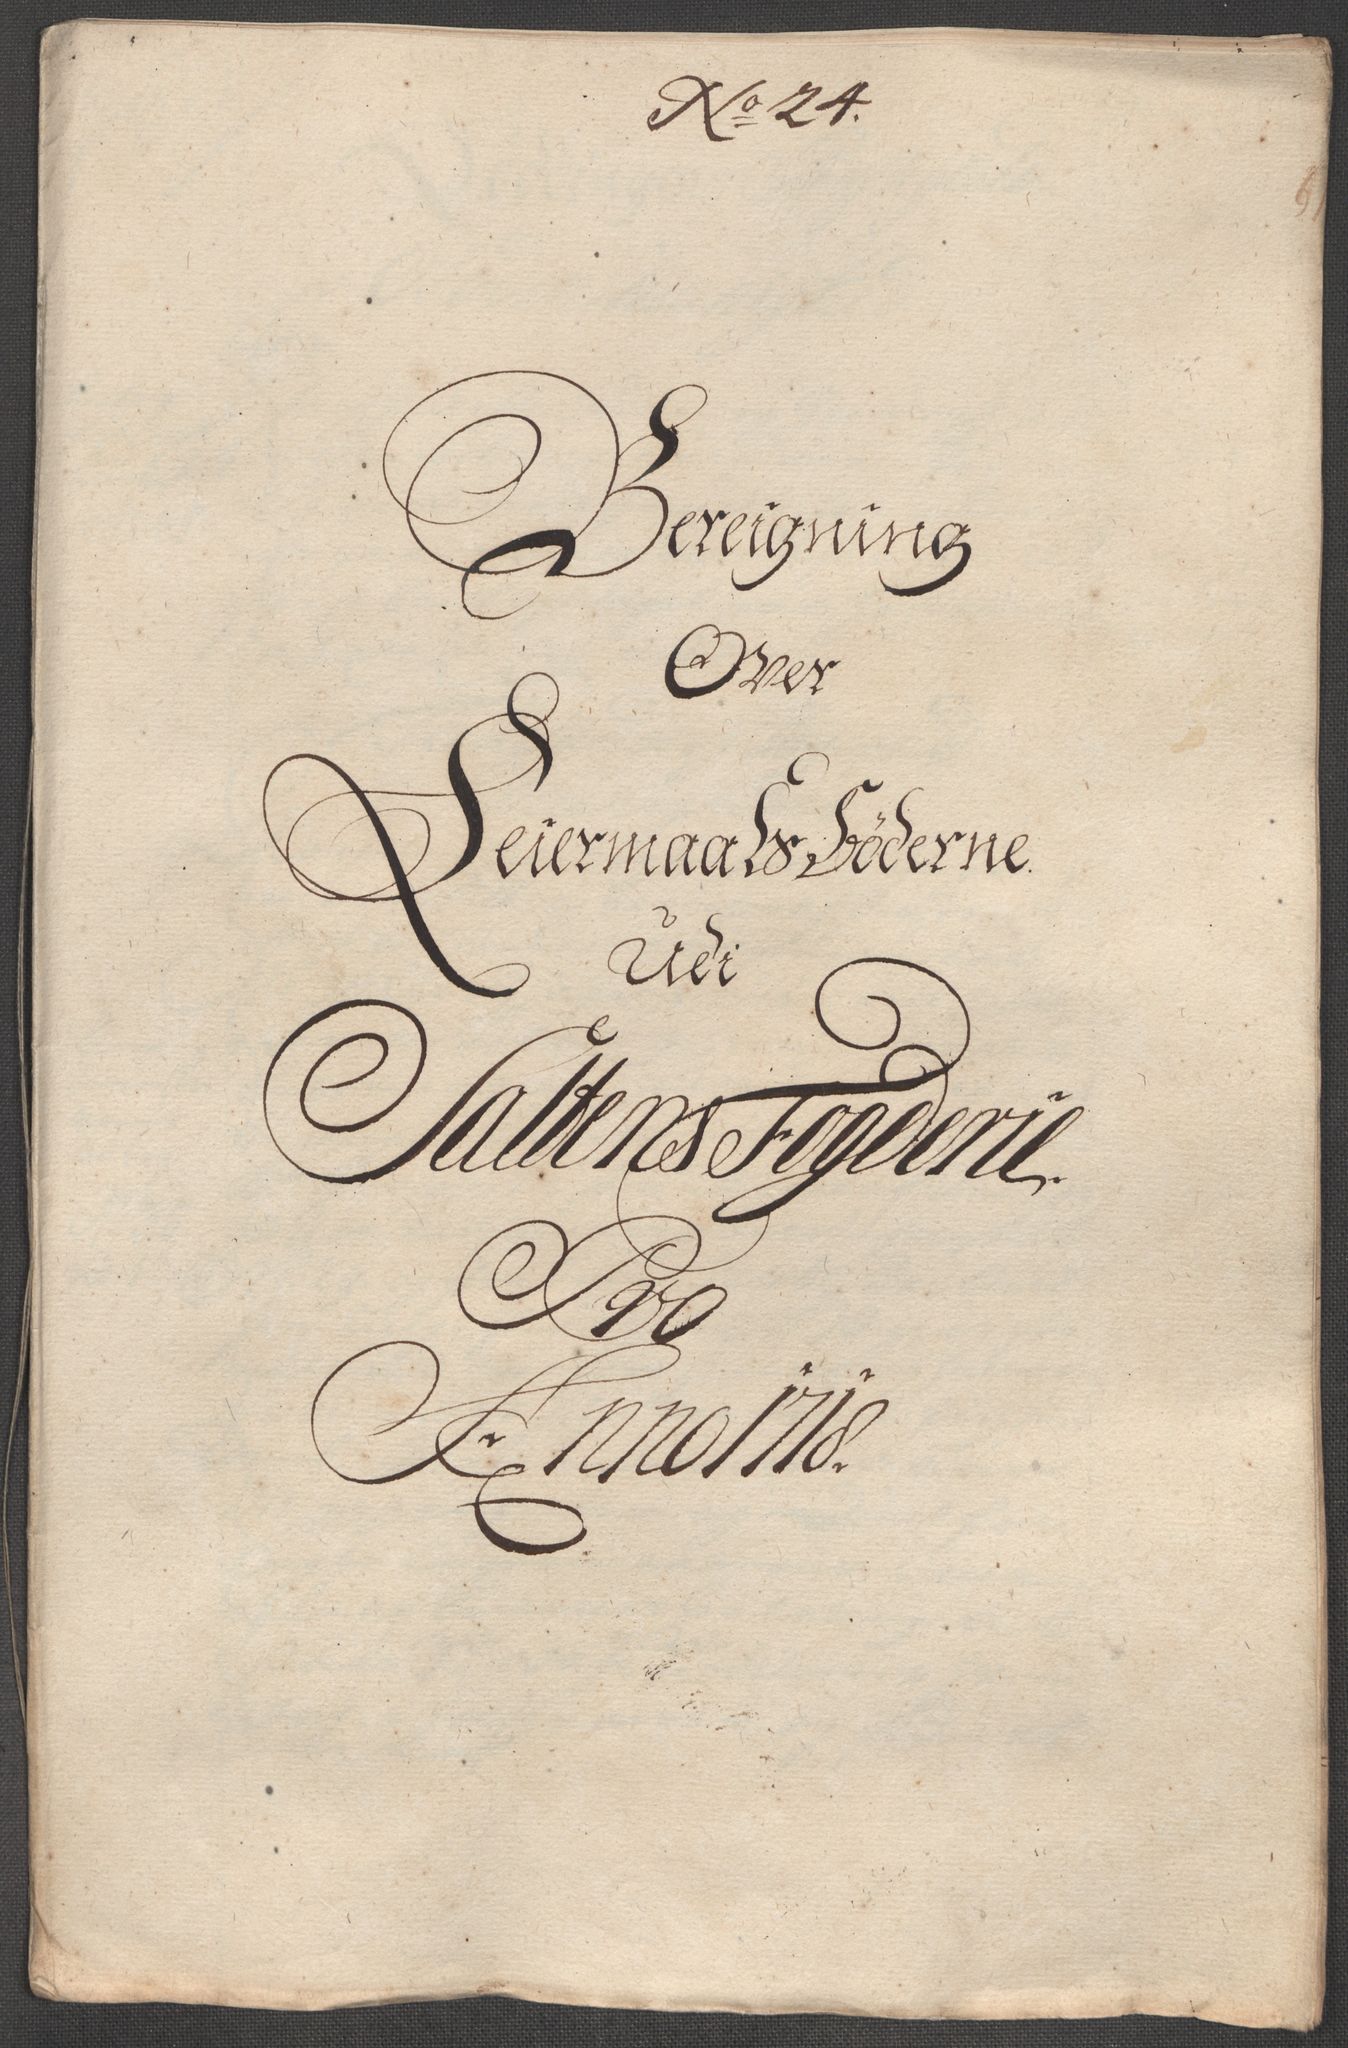 No 24.
Bereigning
Over
Leiermaals Böderne
Udi
Saltens Fogderie.
Pro
Anno 1718.